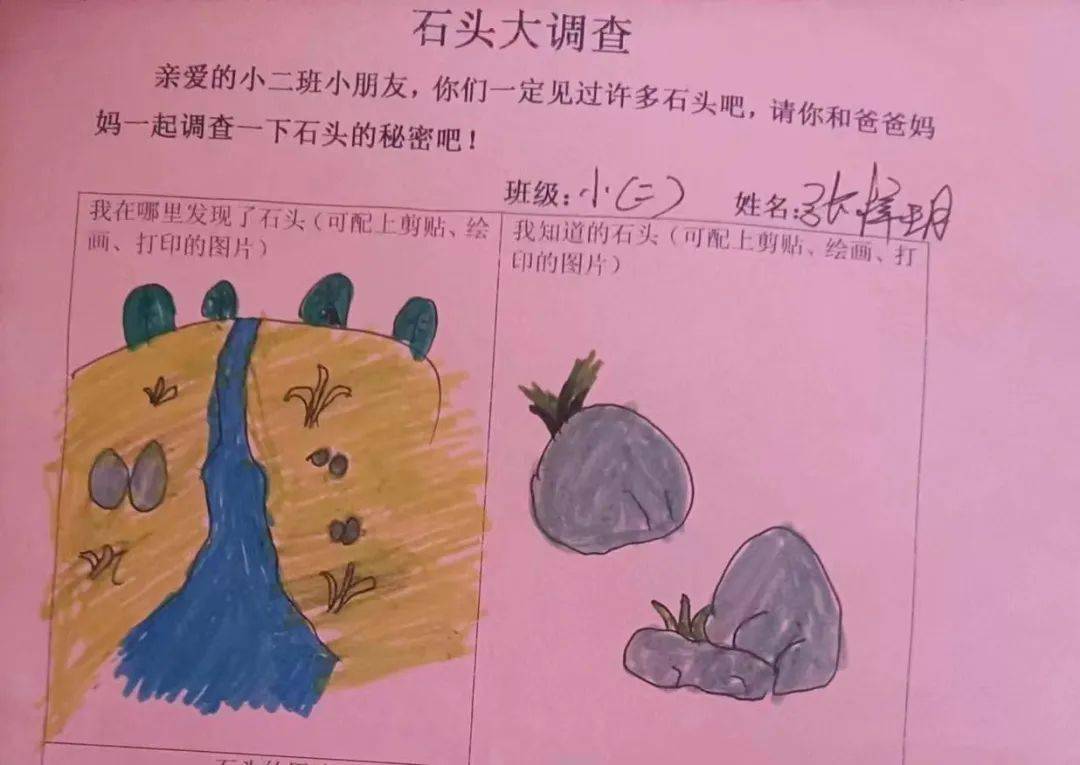 石头大调查
亲爱的小二班小朋友，你们一定见过许多石头吧，请你和爸爸妈
妈一起调查一下石头的秘密吧！
班级：小（二） 姓名：张烨玥
我在哪里发现了石头（可配上剪贴、绘
画、打印的图片）
我知道的石头（可配上剪贴、绘画、打
印的图片）
石头的